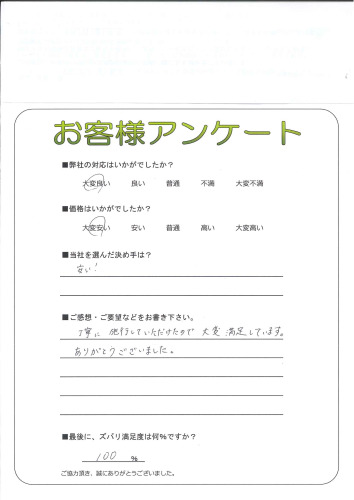 お客様アンケート
■弊社の対応はいかがでしたか？
大変良い　良い　普通　不満　大変不満
■価格はいかがでしたか？
大変安い　安い　普通　高い　大変高い
■当社を選んだ決め手は？
安い！
■ご感想・ご要望などをお書き下さい。
丁寧に施行していただけたので大変満足しています。
ありがとうございました。
■最後に、ズバリ満足度は何%ですか？
100 %
ご協力頂き、誠にありがとうございました。